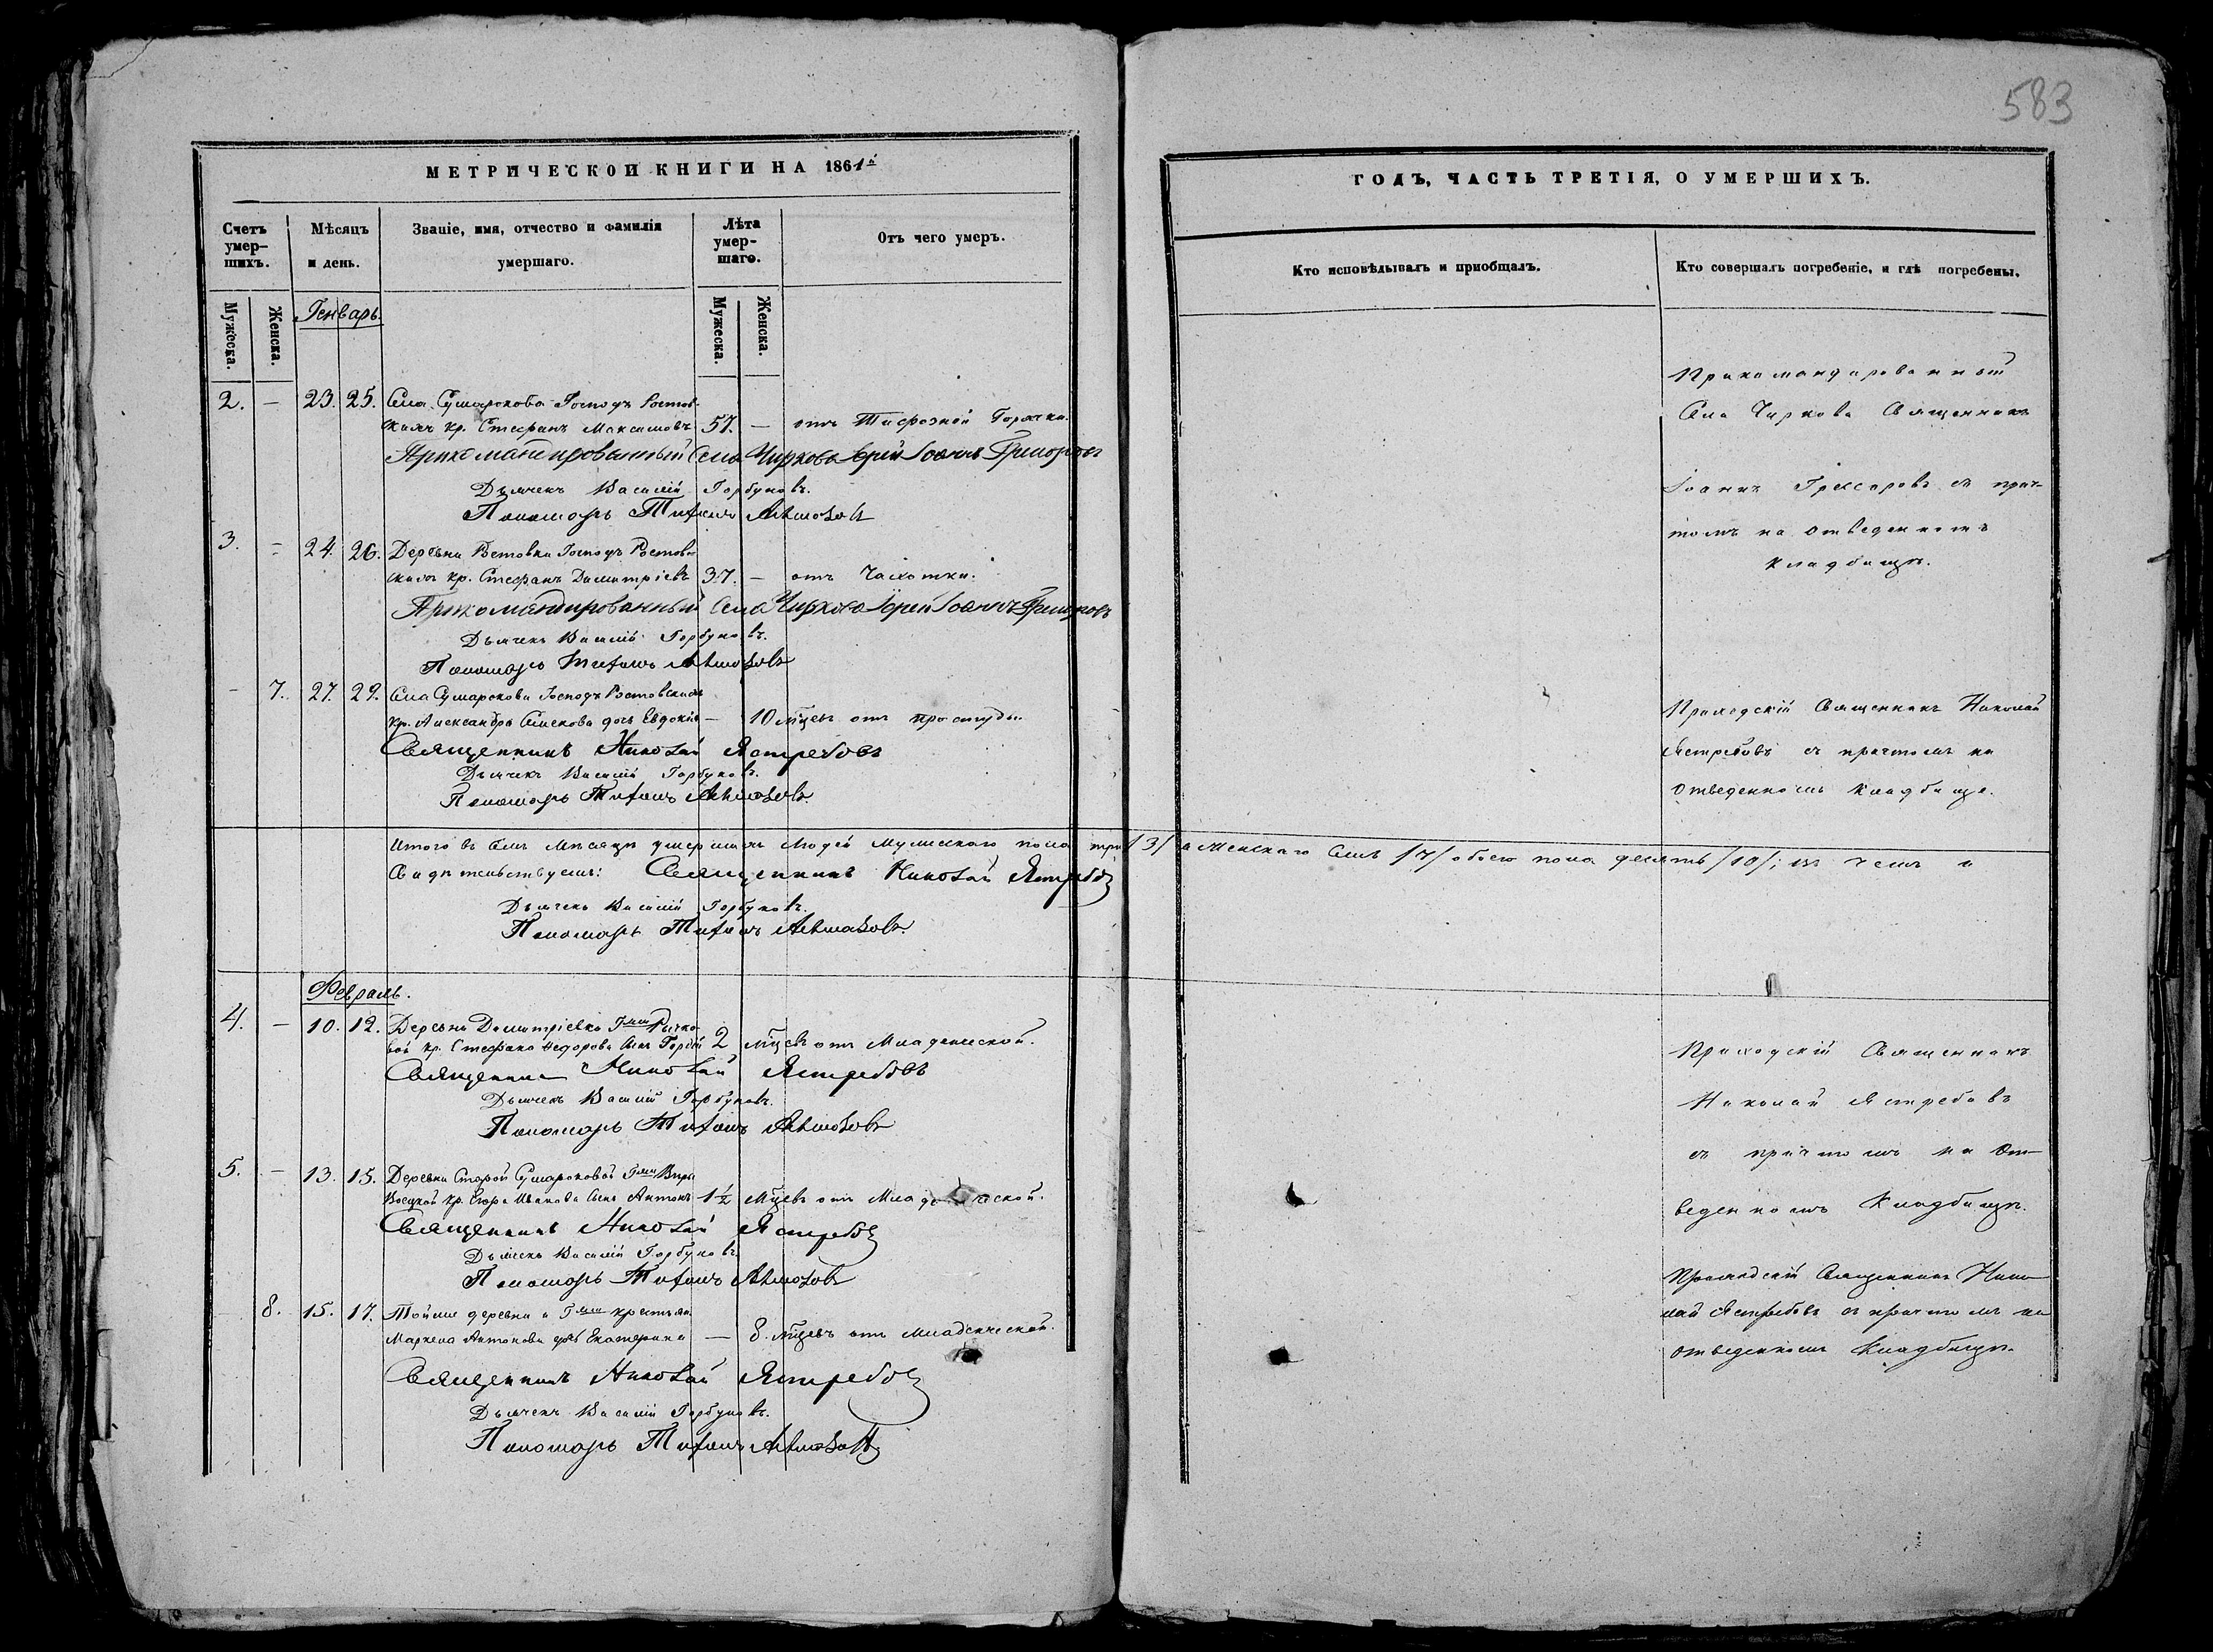 583
МЕТРИЧЕСКОЙ КНИГИ НА 1861й
Счетъ умер-шихъ.
Мѣсяцъ и день.
Званіе, имя, отчество и фамилія умершаго.
Лѣта умер-шаго.
Отъ чего умеръ.
Мужеска.
Женска.
Мужеска.
Женска.
Генварь.
2. — 23. 25. Села Сумарокова Господъ Ростов-
скихъ кр. Стефанъ Максимовъ 57. — отъ Тифозной Горячки.
Прикомандированный Села Чиркова Іерей Іоаннъ
Дьячекъ Василій Горбуновъ.
Пономарь Тихонъ
3. — 24. 26. Деревни Ростовки Господъ Ростов-
скихъ кр. Стефанъ Димитріевъ 37. — отъ Чахотки.
Прикомандированный Села Чиркова Іерей Іоаннъ
Дьячекъ Василій Горбуновъ.
Пономарь Тихонъ
— 7. 27. 29. Села Сумарокова Господъ Ростовскихъ
кр. Александра дочь Евдокія — 10 мцевъ отъ простуды.
Священникъ Николай Ястребовъ
Дьячекъ Василій Горбуновъ.
Пономарь Тихонъ
Итого въ семъ Мѣсяцѣ умершихъ людей мужескаго пола три /3/
Свидѣтельствуемъ: Священникъ Николай Ястребовъ
Дьячекъ Василій Горбуновъ.
Пономарь Тихонъ
Февраль.
4. — 10. 12. Деревни Димитріевки Гжи
кр. Стефана Федорова сынъ 2 мцевъ отъ Младенческой.
Священникъ Николай Ястребовъ
Дьячекъ Василій Горбуновъ.
Пономарь Тихонъ
5. — 13. 15. Деревни Старой Сумароковой Гжи
кр. Егора Иванова сынъ Антонъ 1½ мцевъ отъ Младенческой.
Священникъ Николай Ястребовъ
Дьячекъ Василій Горбуновъ
Пономарь Тихонъ
8. 15. 17. Той же деревни и Гжи крестьян.
Маркела Антонова дочь Екатерина — 8. мцевъ отъ младенческой.
Священникъ Николай Ястребовъ
Дьячекъ Василій Горбуновъ.
Пономарь Тихонъ
ГОДЪ, ЧАСТЬ ТРЕТІЯ, О УМЕРШИХЪ.
Кто исповѣдывалъ и пріобщалъ.
Кто совершалъ погребеніе, и гдѣ погребены.
Прикомандированный
Села Чиркова Священникъ
Іоаннъ съ прич-
томъ на отведенномъ
кладбищѣ.
Приходскій Священникъ Николай
Ястребовъ съ причтомъ на
отведенномъ кладбище.
а женскаго семь /7/ обоего пола десять /10/; въ чемъ и
Приходскій Священникъ
Николай Ястребовъ
съ причтомъ на От-
веденномъ Кладбищѣ.
Приходскій Священникъ Нико-
лай Ястребовъ съ причтомъ на
отведенномъ Кладбищѣ.